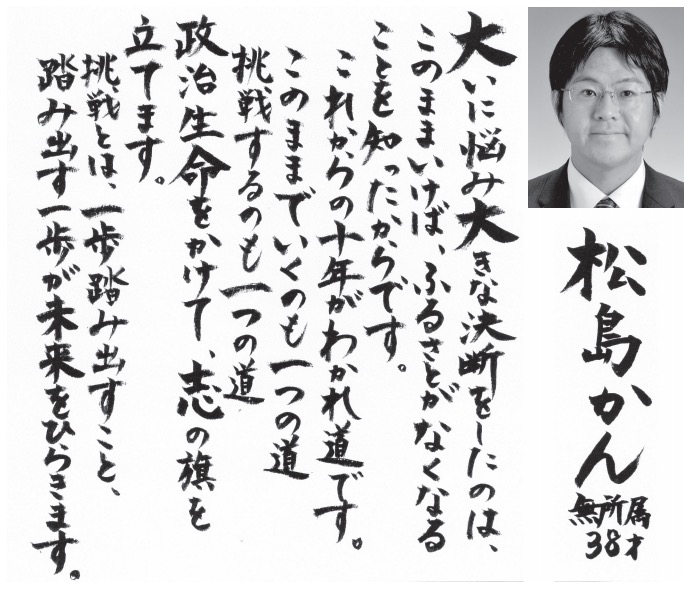 大いに悩み大きな決断をしたのは、
このままいけば、ふるさとがなくなる
ことを知ったからです。
これからの十年がわかれ道です。
このままでいくのも一つの道
挑戦するのも一つの道
政治生命をかけて、志の旗を
立てます。
挑戦とは、一歩踏み出すこと、
踏み出す一歩が未来をひらきます。
松島かん
無所属
38才